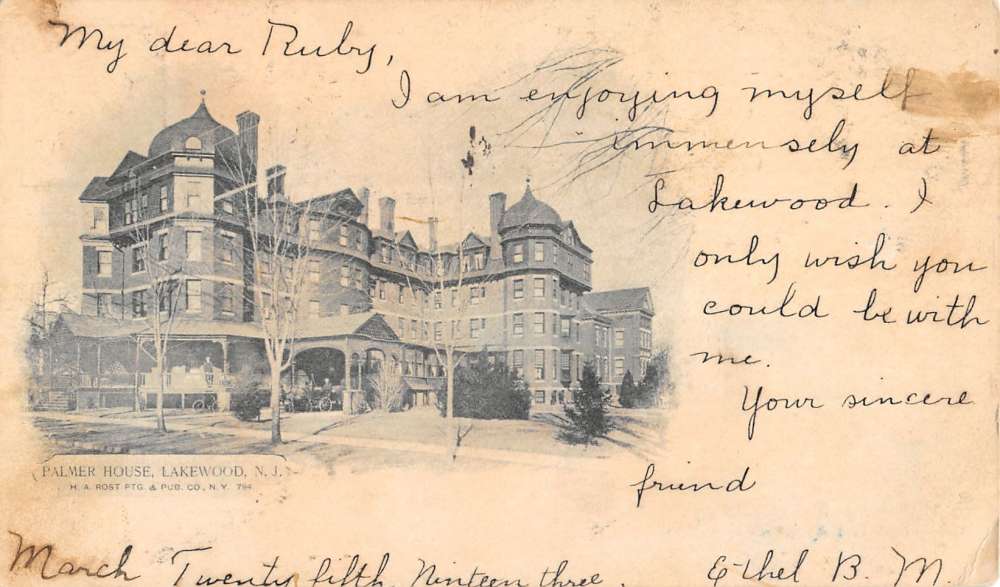 My dear Ruby,
I am enjoying myself
immensely at
Lakewood. I
only wish you
could be with
me.
Your sincere
friend
PALMER HOUSE, LAKEWOOD, N. J.
H. A. ROST PTG. & PUB. CO., N. Y. 794
March Twenty fifth Ninteen three.
Ethel B. M.